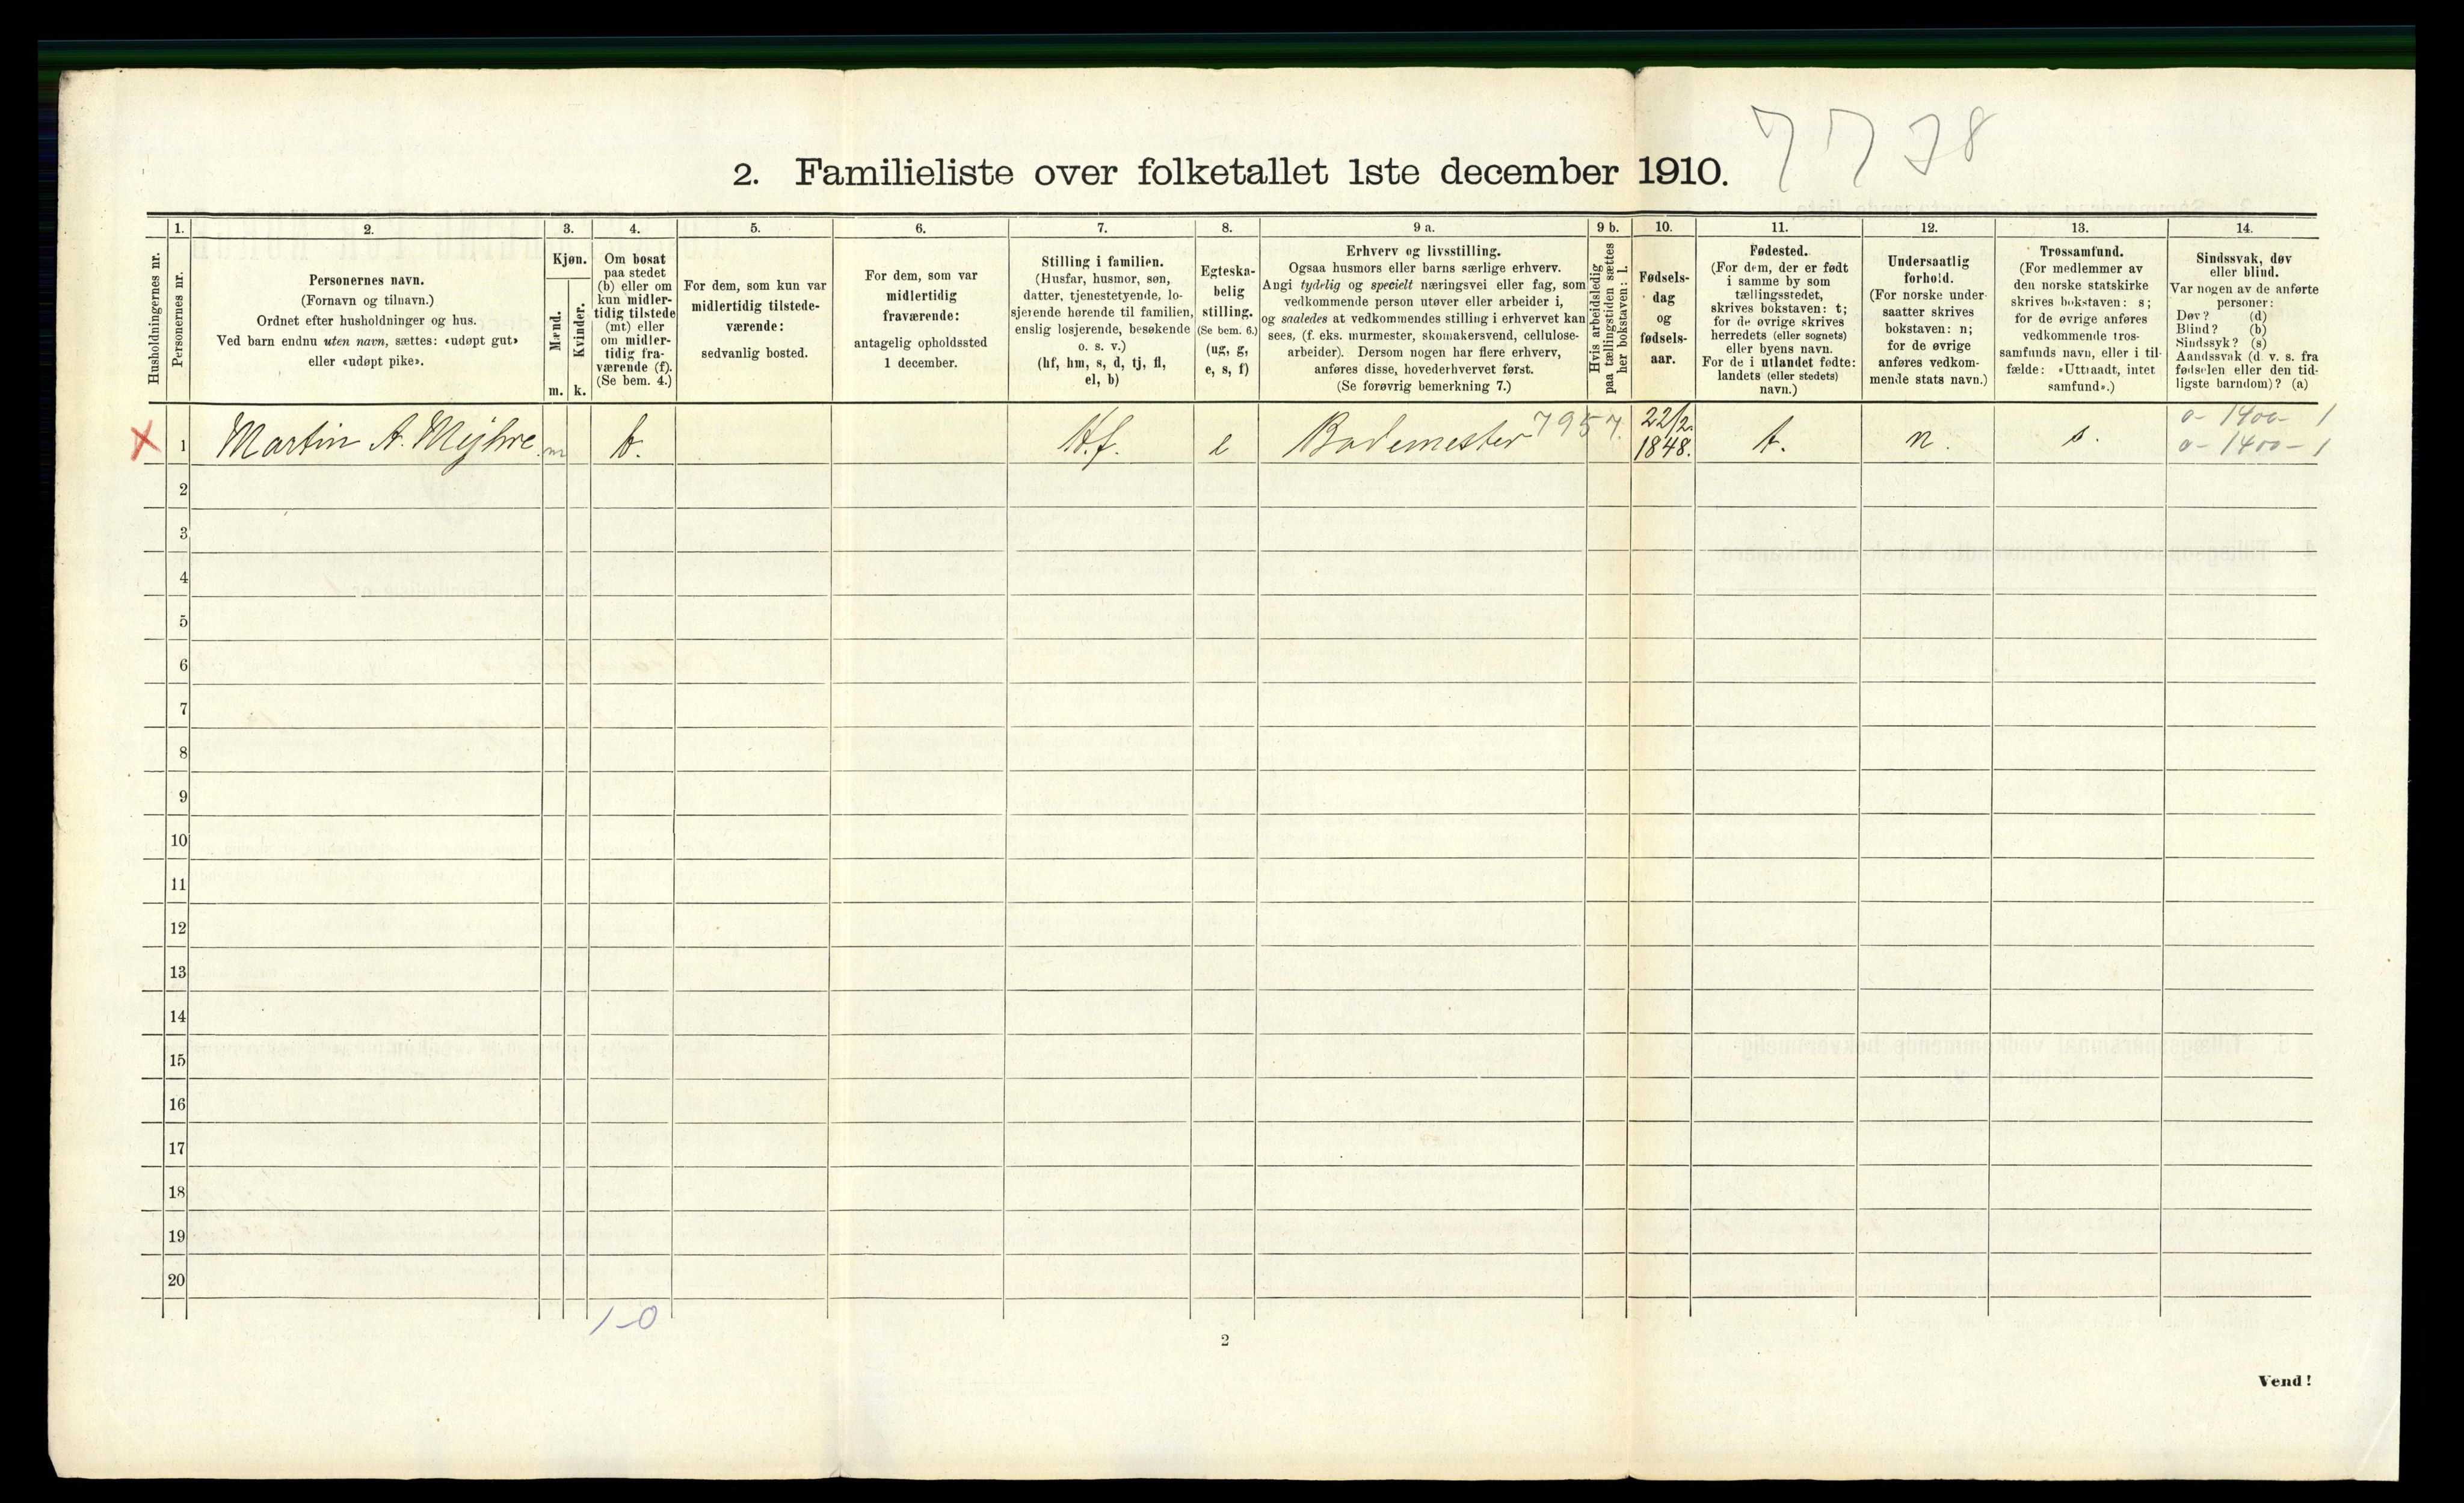 7 7 78
2. Familieliste over folketallet 1ste december 1910.
Husholdningernes nr.
1.
Personernes nr.
2.
Personernes navn.
(Fornavn og tilnavn.)
Ordnet efter husholdninger og hus.
Ved barn endnu uten navn, sættes: «udøpt gut»
eller «udøpt pike».
3.
Kjøn.
Mænd.
m.
Kvinder.
k.
4.
Om bosat
paa stedet
(b) eller om
kun midler-
tidig tilstede
(mt) eller
om midler-
tidig fra-
værende (f).
(Se bem. 4.)
5.
For dem, som kun var
midlertidig tilstede-
værende:
sedvanlig bosted.
6.
For dem, som var
midlertidig
fraværende:
antagelig opholdssted
1 december.
7.
Stilling i familien.
(Husfar, husmor, søn,
datter, tjenestetyende, lo-
sjerende hørende til familien,
enslig losjerende, besøkende
o. s. v.)
(hf, hm, s, d, tj, fl,
el, b)
8.
Egteska-
belig
stilling.
(Se bem. 6.)
(ug, g,
e, s, f)
9 a.
Erhverv og livsstilling.
Ogsaa husmors eller barns særlige erhverv.
Angi tydelig og specielt næringsvei eller fag, som
vedkommende person utøver eller arbeider i,
og saaledes at vedkommendes stilling i erhvervet kan
sees, (f. eks. murmester, skomakersvend, cellulose-
arbeider). Dersom nogen har flere erhverv,
anføres disse, hovederhvervet først.
(Se forøvrig bemerkning 7.)
9 b.
Hvis arbeidsledig
paa tællingstiden sættes
her bokstaven: l.
10.
Fødsels-
dag
og
fødsels-
aar.
11.
Fødested.
(For dem, der er født
i samme by som
tællingsstedet,
skrives bokstaven: t;
for de øvrige skrives
herredets (eller sognets)
eller byens navn.
For de i utlandet fødte:
landets (eller stedets)
navn.)
12.
Undersaatlig
forhold.
(For norske under-
saatter skrives
bokstaven: n;
for de øvrige
anføres vedkom-
mende stats navn.)
13.
Trossamfund.
(For medlemmer av
den norske statskirke
skrives bokstaven: s;
for de øvrige anføres
vedkommende tros-
samfunds navn, eller i til-
fælde: «Uttraadt, intet
samfund».)
14.
Sindssvak, døv
eller blind.
Var nogen av de anførte
personer:
Døv? (d)
Blind? (b)
Sindssyk? (s)
Aandssvak (d. v. s. fra
fødselen eller den tid-
ligste barndom)? (a)
X 1 Martin A. Mejhre. m b. H.f. e Bademester 7957. 22/2. 1848. t. n. s. 0-1400-1
0-1400-1
2
3
4
5
6
7
8
9
10
11
12
13
14
15
16
17
18
19
20
1-0
2
Vend!